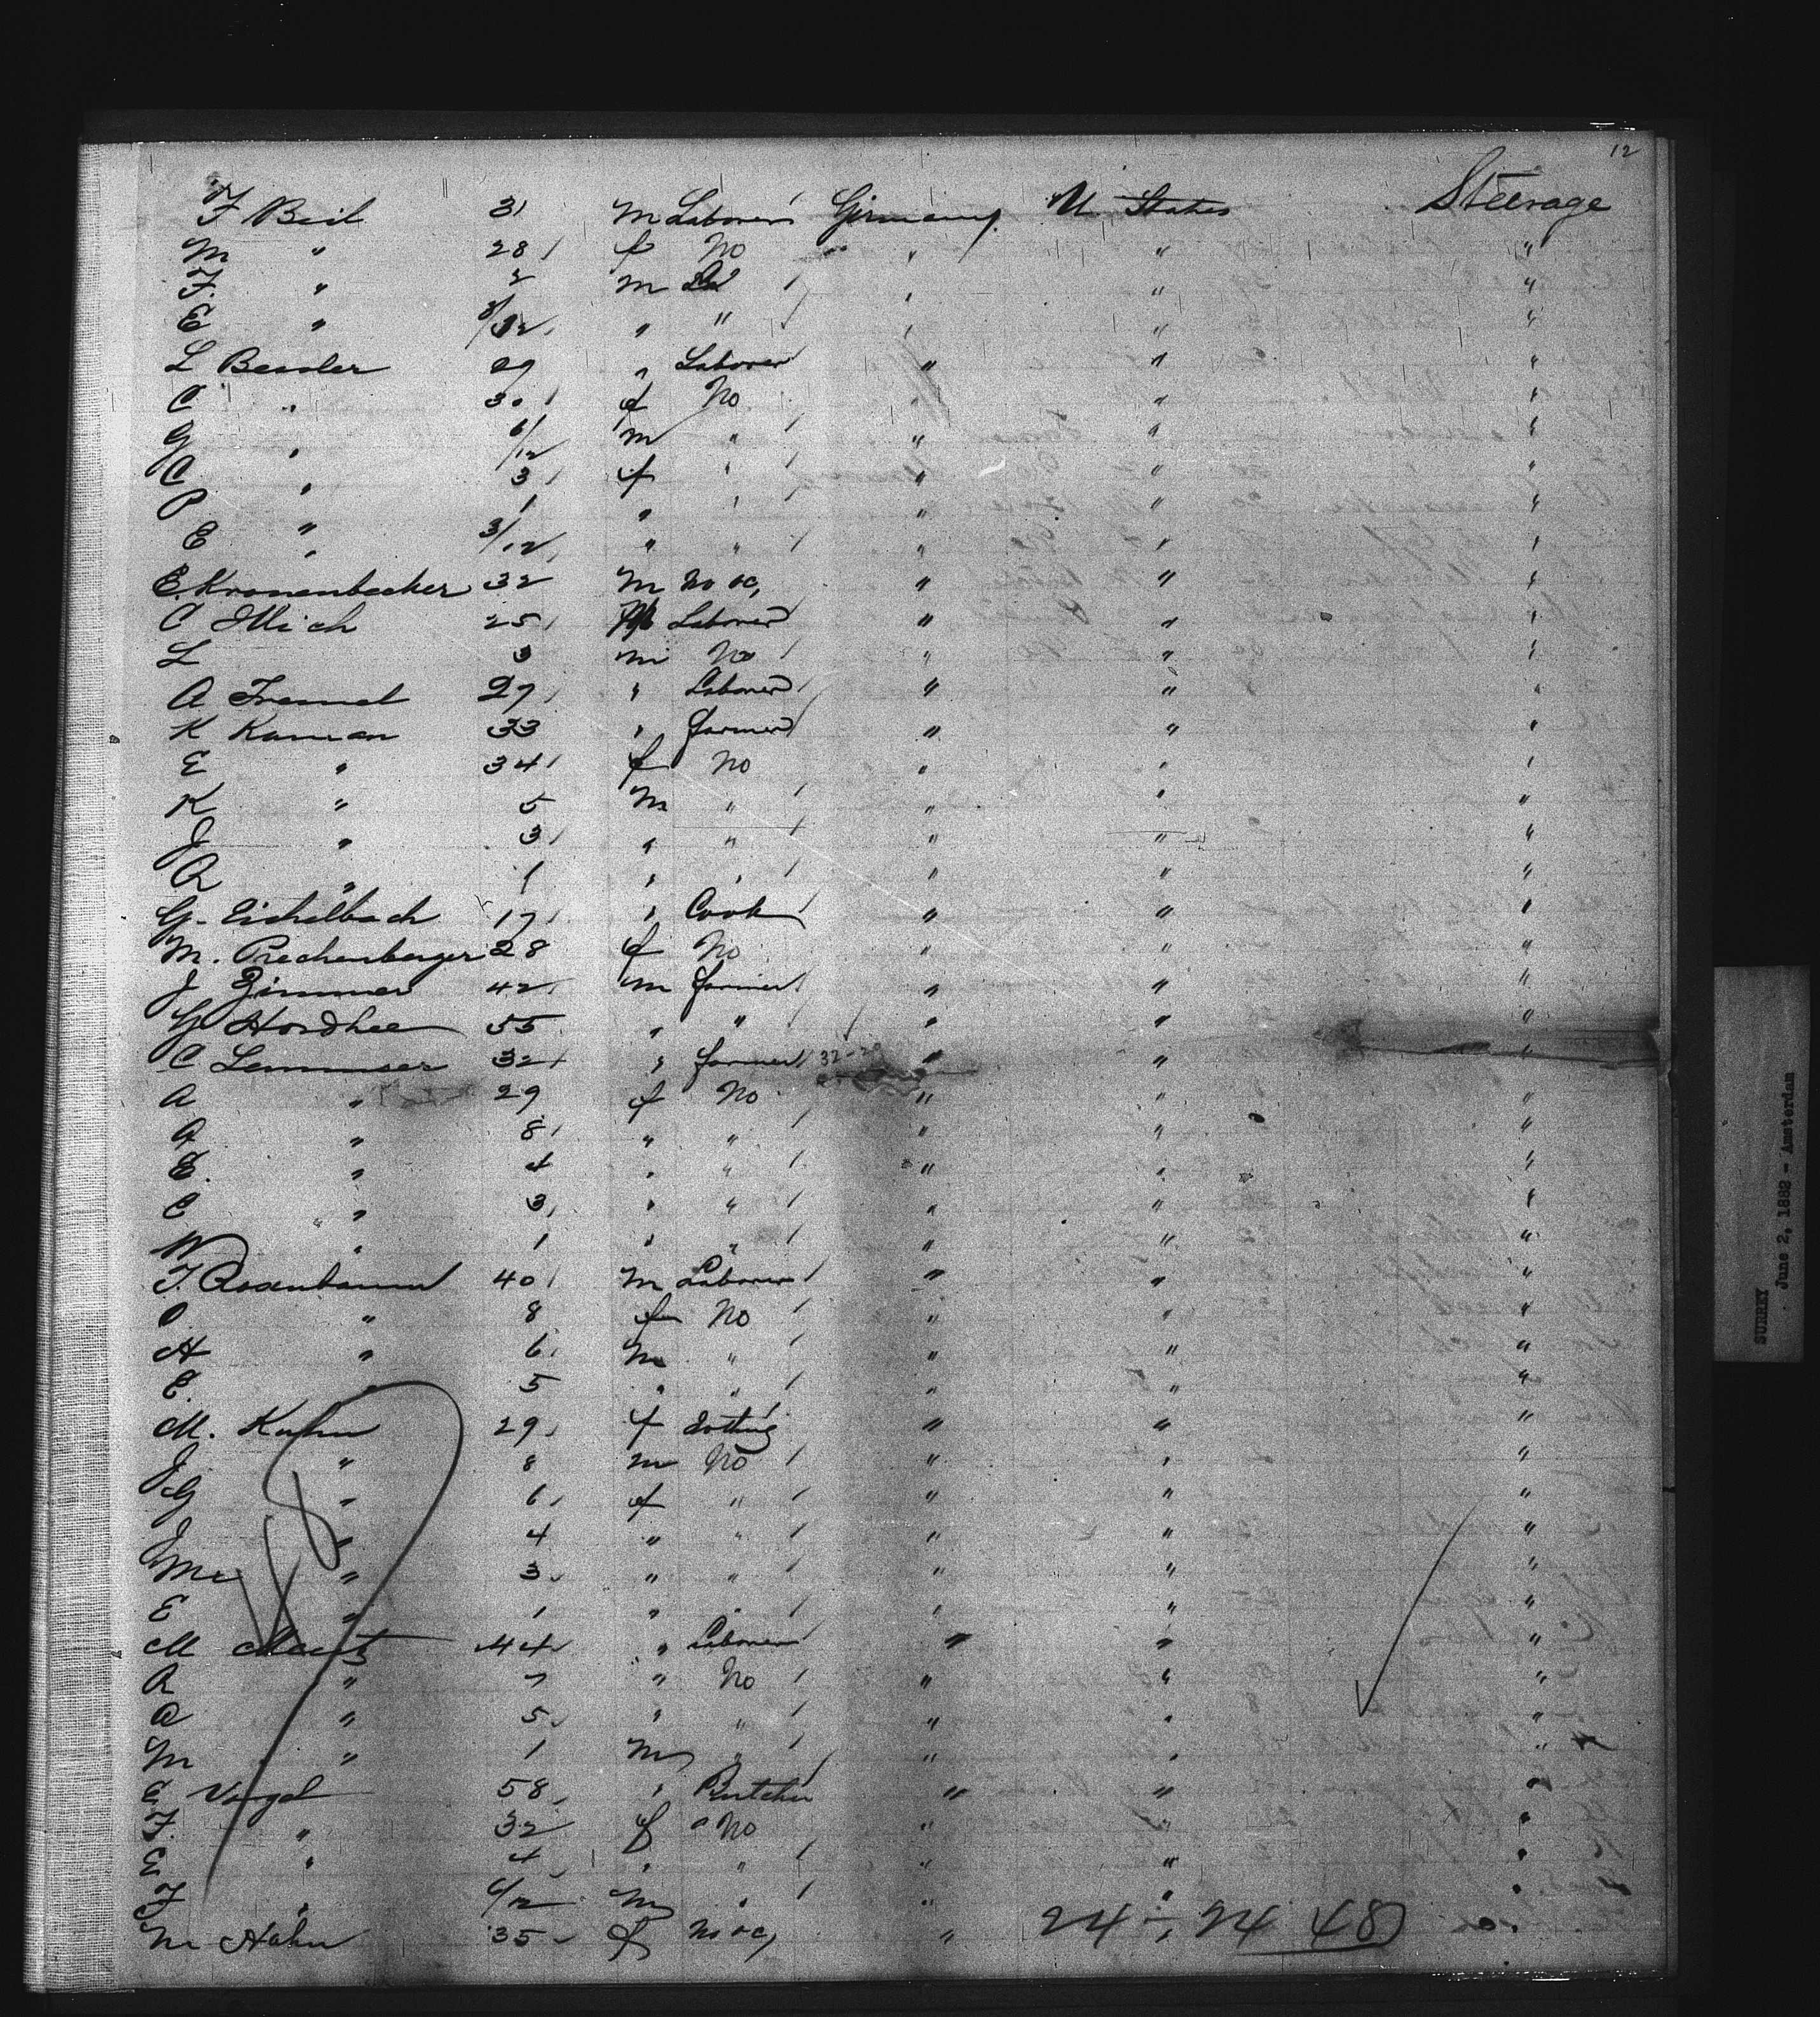 12
F Beil 31 m Laborer Germany U. States Steerage
m " 28 f No " " "
F. " 2 m " " "
E " 8/12 " " " " "
L Bessler 29 " Laborer " " "
C " 30 f No " " "
G " 6/12 m " " " "
C " 3 f " " " "
P " 1 " " " " "
E " 3/12 " " " " "
E. Kronenbecker 32 m No oc, " " "
C Illich 25 Laborer " " "
L 3 m No " " "
A 27 " Laborer " " "
K Kaman 33 " farmer " " "
E " 34 f No " " "
K " 5 m " " " "
J " 3 " " " " "
A " 1 " " " " "
G. Eichelbach 17 " Cook " " "
M. Rechenberger 28 f No " " "
J Zimmer 42 m farmer " " "
G 55 " " " " "
C Lemmser 32 " farmer 32-29 " " "
A " 29 f No " " "
A " 8 " " " " "
E. " 4 " " " " "
C " 3 " " " " "
W " 1 " " " " "
F. Rosenbaum 40 m Laborer " " "
O. " 8 f No " " "
H " 6 m " " " "
E. " 5 " " " " "
M. Kuhn 29 f " " "
J " 8 m No " " "
G " 6 f " " " "
J " 4 " " " " "
" 3 " " " " "
E " 1 " " " " "
M 44 " Laborer " " "
R " 7 " No " " "
A " 5 " " " " "
M " 1 m " " " "
E. Vogel 58 " Butcher " " "
F. " 32 f No " " "
E " 4 " " " " "
F " 6/12 m " " " "
M Hahn 35 f No oc, " 24 ÷ 24 48 "
48
SURREY
June 2, 1882 - Amsterdam